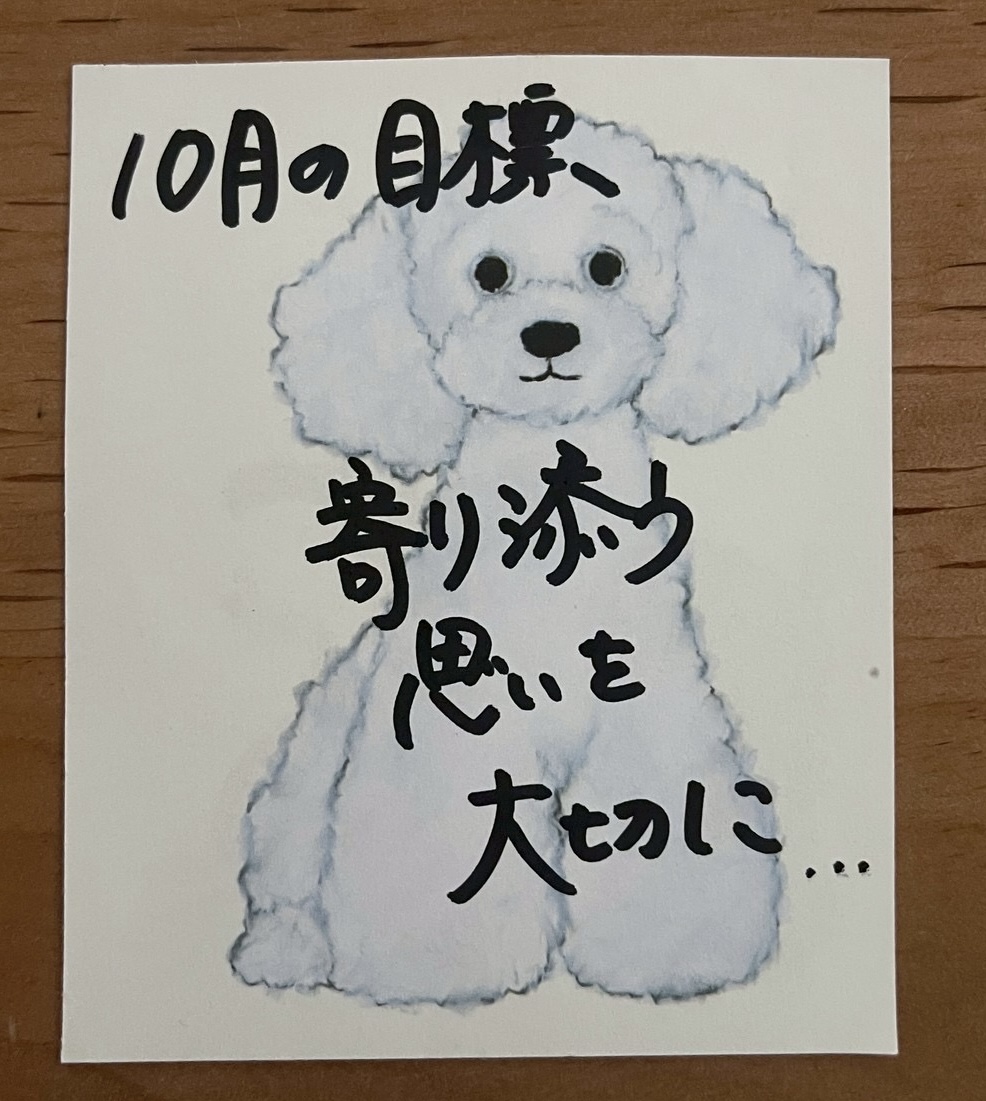 10月の目標、
寄り添う
思いを
大切に...